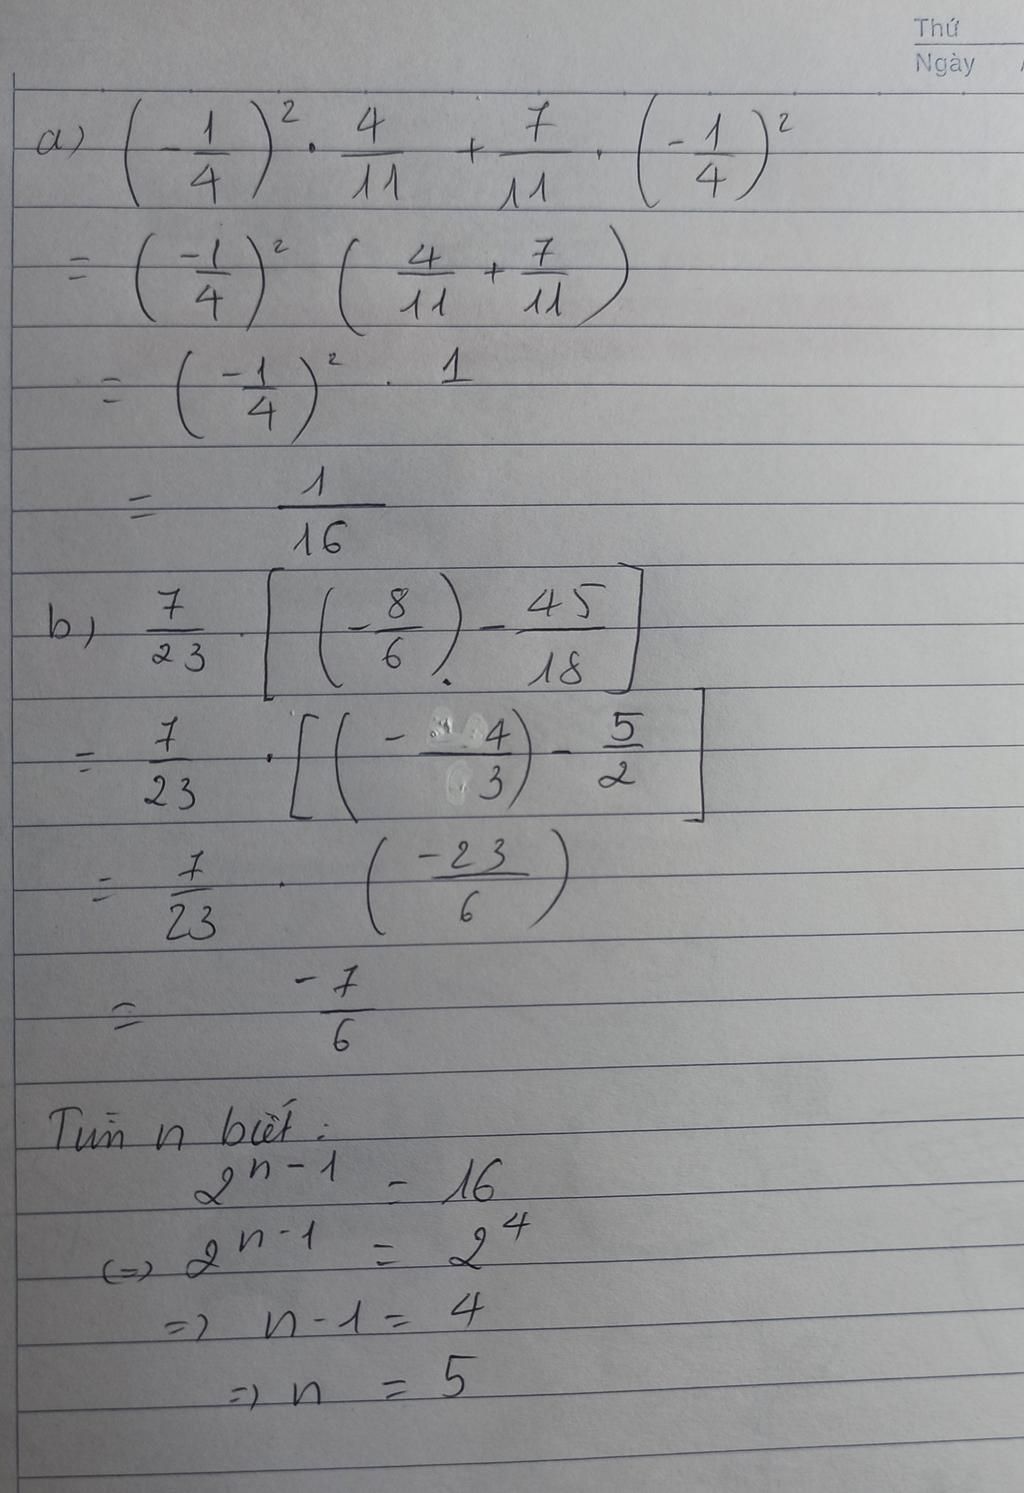 Thứ
Ngày /
a) (-1/4)² · 4/11 + 7/11 · (-1/4)²
= (-1/4)² (4/11 + 7/11)
= (-1/4)² · 1
= 1/16
b) 7/23 · [(-8/6) - 45/18]
= 7/23 · [(-4/3) - 5/2]
= 7/23 · (-23/6)
= -7/6
Tìm n biết :
2ⁿ⁻¹ = 16
(=) 2ⁿ⁻¹ = 2⁴
=) n - 1 = 4
=) n = 5